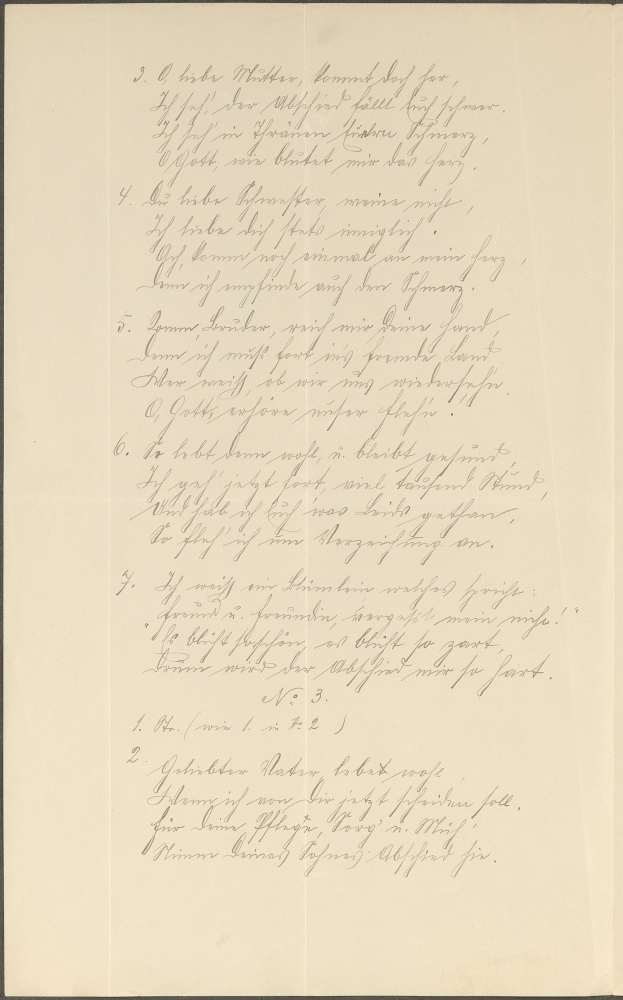 3. O, liebe Mutter, kommt doch her,
Ich seh', der Abschied fällt Euch schwer.
Ich seh' in Thränen Euern Schmerz,
O Gott, wie blutet mir das Herz.
4. Du liebe Schwester, weine nicht,
Ich liebe dich stets inniglich.
Ach, komm noch einmal an mein Herz,
Denn ich empfinde auch den Schmerz.
5. Komm, Bruder, reich mir Deine Hand,
Denn ich muß fort in's fremde Land.
Wer weiß, ob wir uns wiederseh'n.
O, Gott, erhöre unser Fleh'n.
6. So lebt denn wohl, u. bleibt gesund,
Ich geh' jetzt fort, viel tausend Stund,
Und hab ich Euch was Leids gethan,
So fleh' ich um Verzeihung an.
7. Ich weiß ein Blümlein welches spricht:
"Freund u. Freundin, vergeßt mein nicht!"
Es blüht so schön, es blüht so zart,
Drum wird der Abschied mir so hart.
No 3.
1. Str. (wie 1. in No 2)
2. Geliebter Vater, lebet wohl
Wenn ich von Dir jetzt scheiden soll.
Für Deine Pflege, Sorg' u. Müh'
Nimm Deines Sohnes Abschied hie.